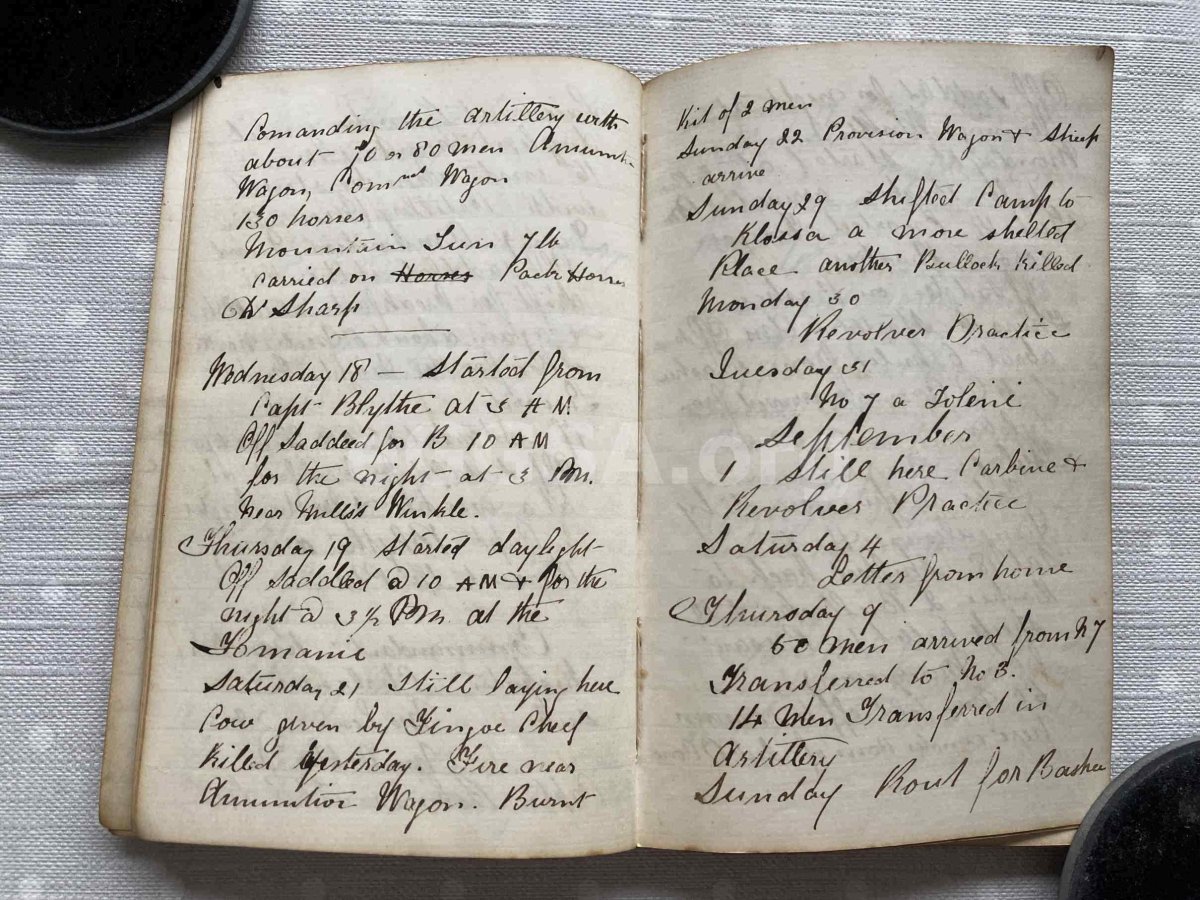 Comanding the artillery with
about 70 or 80 men Amunti
Wagon, Wagon
130 horses
Mountain Gun 7 lb
carried on Horses Pack Horses
Dr Sharp
Wednesday 18 — Started from
Capt Blythe at 3 AM
Off Saddled for B 10 AM
for the night at 3 Pm.
Near Mills's Winkle.
Thursday 19 started daylight
Off saddled @ 10 AM & for the
night @ 3½ Pm. at the
Tomanie
Saturday 21 still laying here
Cow given by Fingoe Cheif
killed yesterday. Fire near
Amunition Wagon. Burnt
Kit of 2 men
Sunday 22 Provision Wagon & Sheep
arrive
Sunday 29 Shifted Camp to
a more shelted
Place another Bullock killed
Monday 30
Revolver Practice
Tuesday 31
No 7 a
September
1 Still here Carbine &
Revolver Practice
Saturday 4
Letter from home
Thursday 9
60 men arrived from N 7
Transferred to No 3.
14 men Transferred in
Artillery
Sunday Rout for Bashee